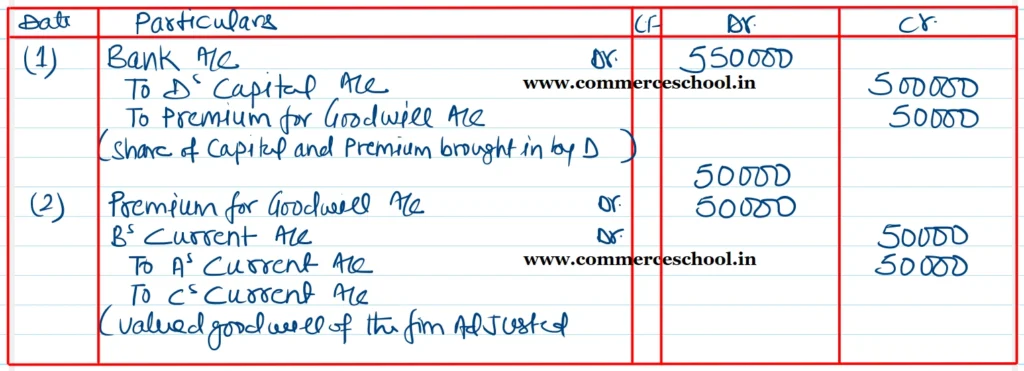 Date Particulars LF Dr. Cr.
(1) Bank A/c Dr. 550000
www.commerceschool.in
To Ds Capital A/c 500000
To Premium for Goodwill A/c 50000
(Share of Capital and Premium brought in by D)
50000
(2) Premium for Goodwill A/c Dr. 50000
Bs Current A/c Dr. 50000
To As Current A/c www.commerceschool.in 50000
To Cs Current A/c
(Valued goodwill of the firm Adjusted